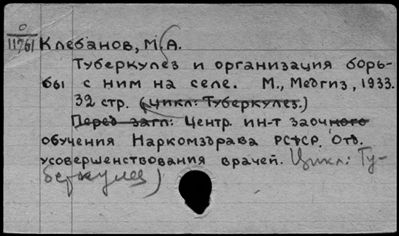 0
11761
Клебанов, М. А.
Туберкулез и организация борь-
бы с ним на селе. М., Медгиз, 1933.
32 стр. (цикл: Туберкулез.)
Перед загл: Центр. ин-т заочного
обучения Наркомздрава РСФСР. Отд.
усовершенствования врачей. Цикл: Ту-
беркулез)